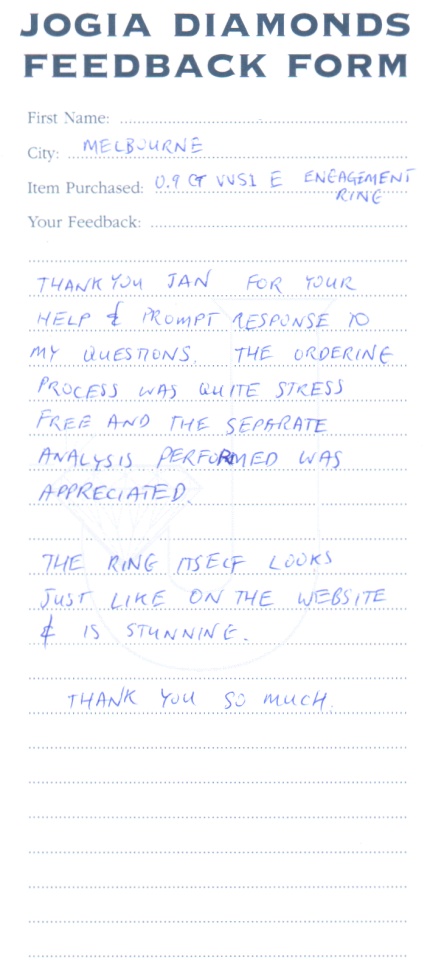 JOGIA DIAMONDS
FEEDBACK FORM
First Name:
City: MELBOURNE
Item Purchased: 0.9 CT VVS1 E ENGAGEMENT
RING
Your Feedback:
THANK YOU JAN FOR YOUR
HELP & PROMPT RESPONSE TO
MY QUESTIONS. THE ORDERING
PROCESS WAS QUITE STRESS
FREE AND THE SEPARATE
ANALYSIS PERFORMED WAS
APPRECIATED.
THE RING ITSELF LOOKS
JUST LIKE ON THE WEBSITE
& IS STUNNING.
THANK YOU SO MUCH.